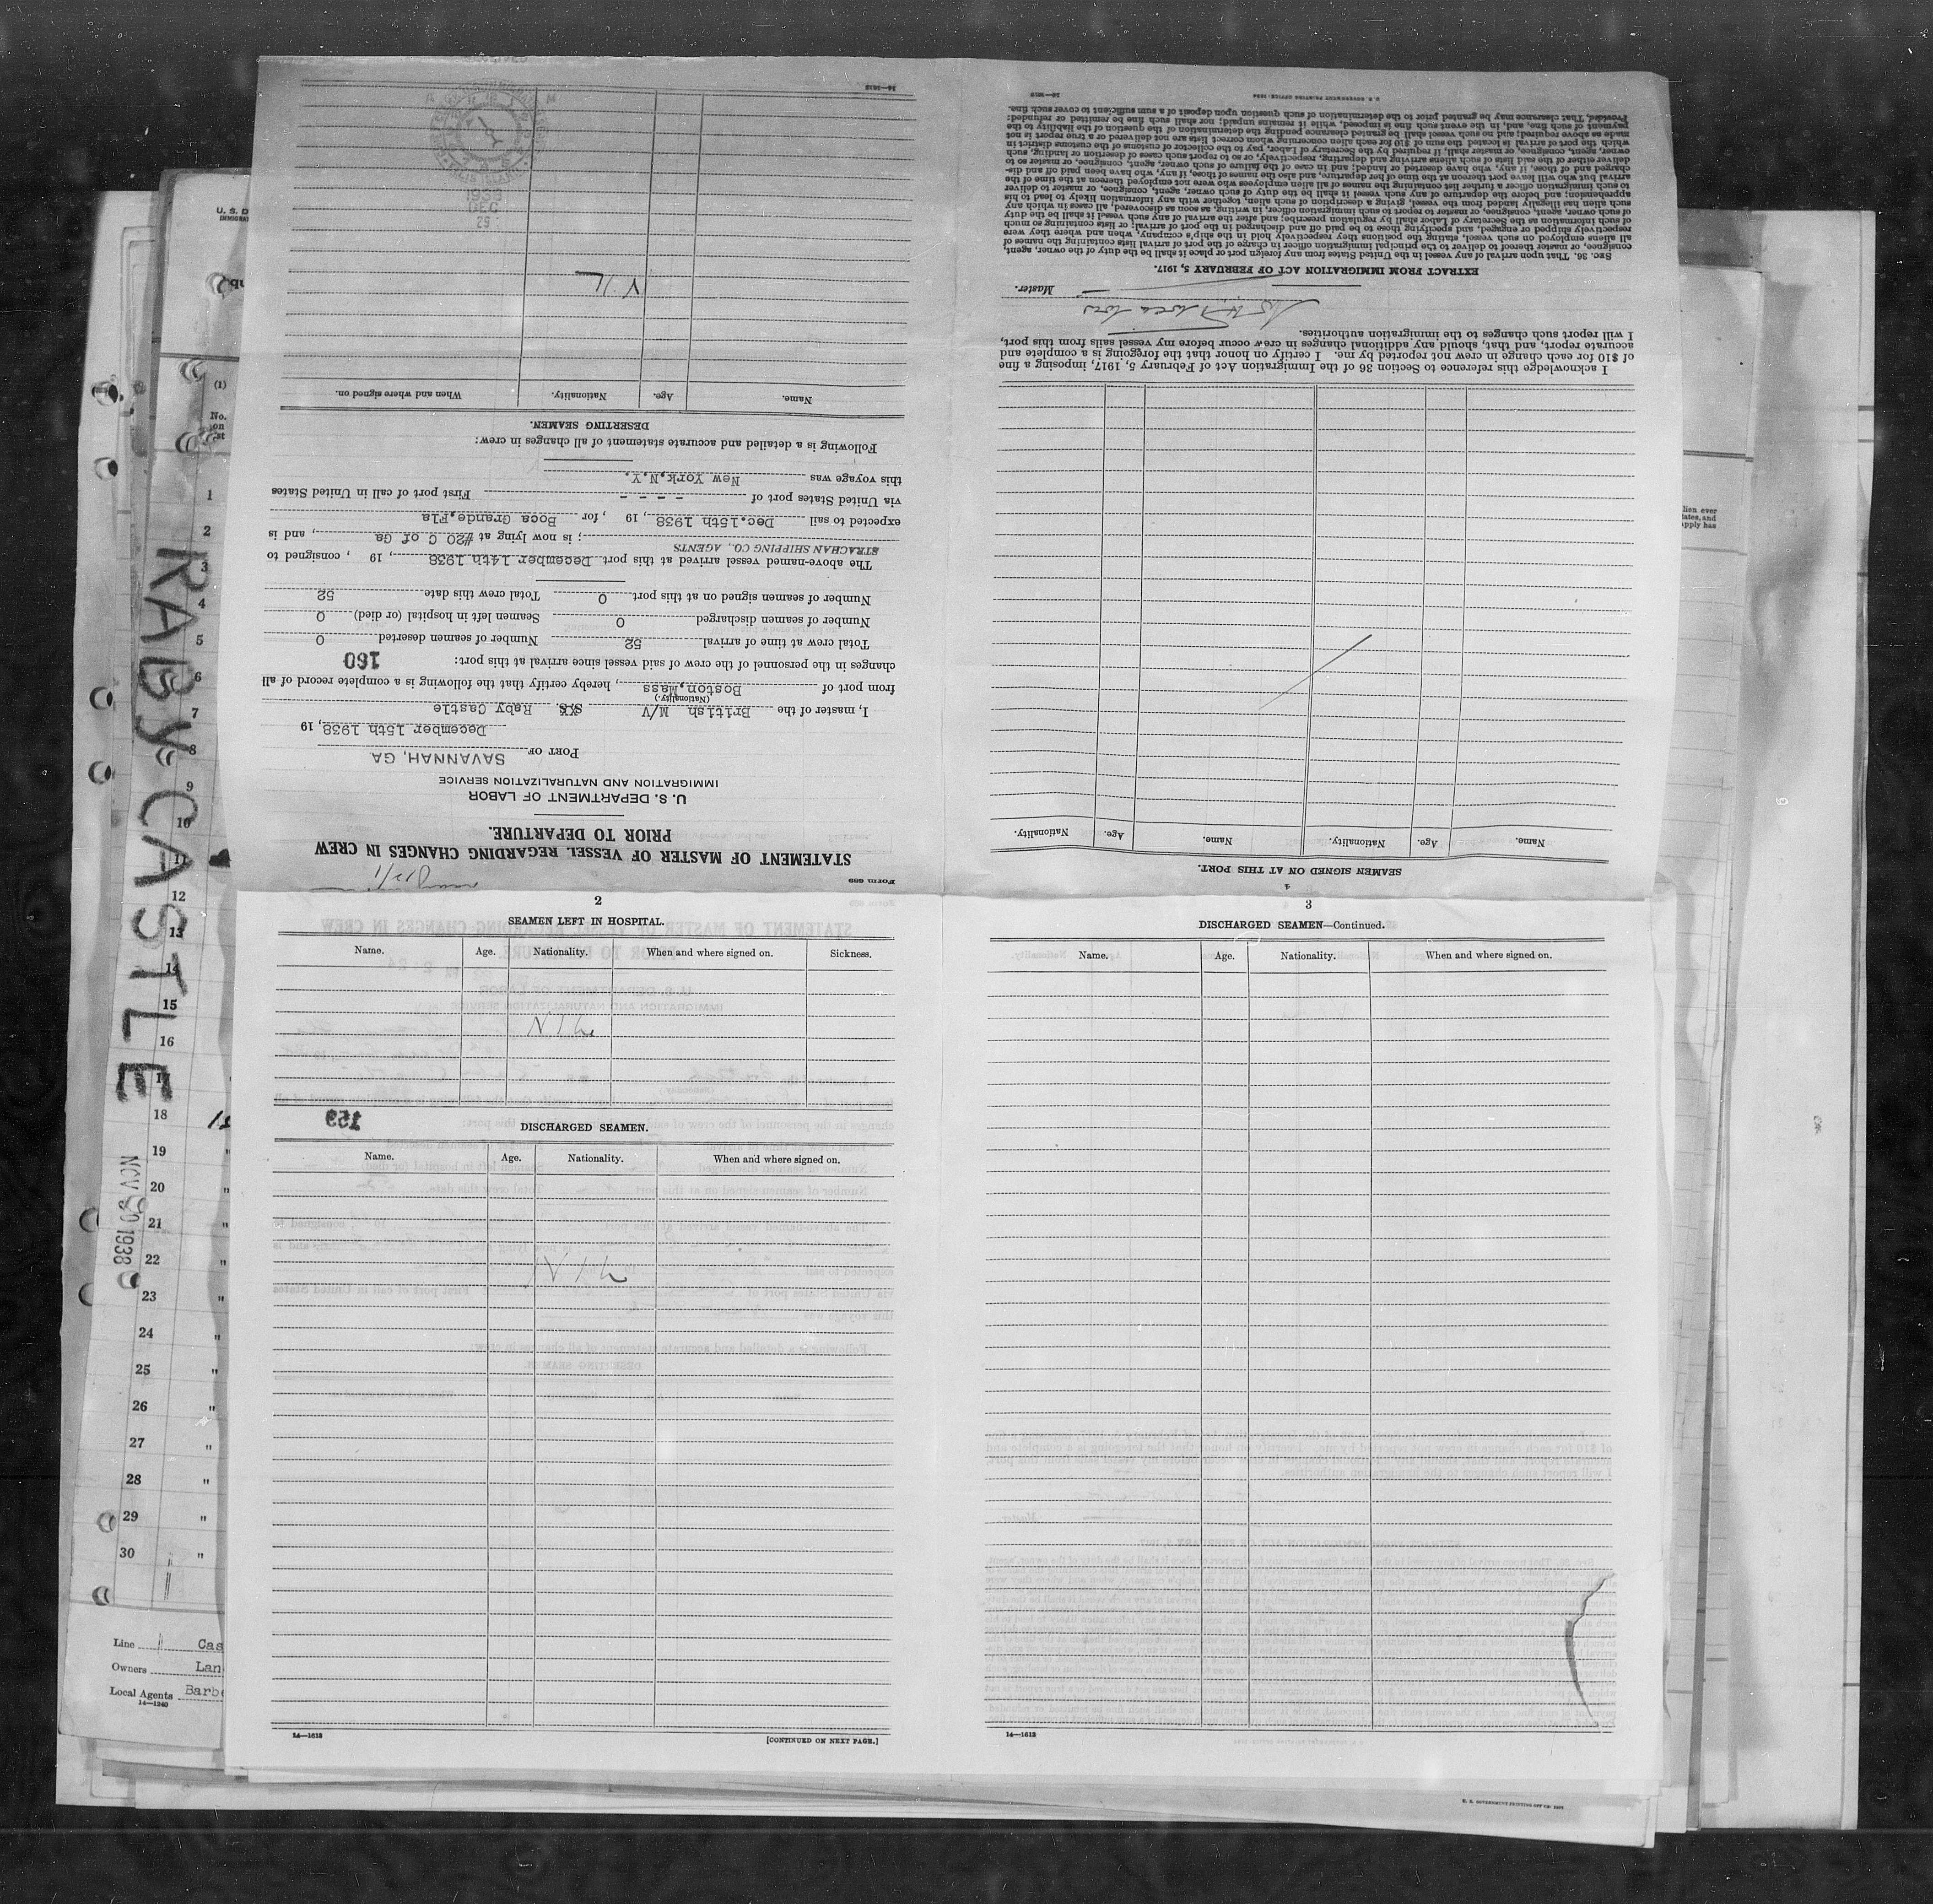 Form 689
STATEMENT OF MASTER OF VESSEL REGARDING CHANGES IN CREW
PRIOR TO DEPARTURE.
U. S. DEPARTMENT OF LABOR
IMMIGRATION AND NATURALIZATION SERVICE
PORT OF SAVANNAH, GA
December 15th 1938, 19
I, master of the British M/V S.S. Raby Castle
(Nationality.)
from port of Boston, Mass, hereby certify that the following is a complete record of all
changes in the personnel of the crew of said vessel since arrival at this port: 160
Total crew at time of arrival 52 Number of seamen deserted 0
Number of seamen discharged 0 Seamen left in hospital (or died) 0
Number of seamen signed on at this port 0 Total crew this date 52
The above-named vessel arrived at this port December 14th 1938, 19 , consigned to
STRACHAN SHIPPING CO., AGENTS ; is now lying at #20 C of Ga , and is
expected to sail Dec.15th 1938, 19 , for Boca Grande,Fla
via United States port of - - - - First port of call in United States
this voyage was New York,N.Y.
Following is a detailed and accurate statement of all changes in crew:
DESERTING SEAMEN.
Name. Age. Nationality. When and where signed on.
1938
DEC
29
14—1613
2
SEAMEN LEFT IN HOSPITAL.
Name. Age. Nationality. When and where signed on. Sickness.
Nil
159
DISCHARGED SEAMEN.
Name. Age. Nationality. When and where signed on.
Nil
14—1613 [CONTINUED ON NEXT PAGE.]
3
DISCHARGED SEAMEN—Continued.
Name. Age. Nationality. When and where signed on.
14—1613
4
SEAMEN SIGNED ON AT THIS PORT.
Name. Age. Nationality. Name. Age. Nationality.
I acknowledge this reference to Section 36 of the Immigration Act of February 5, 1917, imposing a fine
of $10 for each change in crew not reported by me. I certify on honor that the foregoing is a complete and
accurate report, and that, should any additional changes in crew occur before my vessel sails from this port,
I will report such changes to the immigration authorities.
Master.
EXTRACT FROM IMMIGRATION ACT OF FEBRUARY 5, 1917.
SEC. 36. That upon arrival of any vessel in the United States from any foreign port or place it shall be the duty of the owner, agent,
consignee, or master thereof to deliver to the principal immigration officer in charge of the port of arrival lists containing the names of
all aliens employed on such vessel, stating the positions they respectively hold in the ship's company, when and where they were
respectively shipped or engaged, and specifying those to be paid off and discharged in the port of arrival; or lists containing so much
of such information as the Secretary of Labor shall by regulation prescribe; and after the arrival of any such vessel it shall be the duty
of such owner, agent, consignee, or master to report to such immigration officer, in writing, as soon as discovered, all cases in which any
such alien has illegally landed from the vessel, giving a description of such alien, together with any information likely to lead to his
apprehension; and before the departure of any such vessel it shall be the duty of such owner, agent, consignee, or master to deliver
to such immigration officer a further list containing the names of all alien employees who were not employed thereon at the time of the
arrival but who will leave port thereon at the time of her departure, and also the names of those, if any, who have been paid off and dis-
charged and of those, if any, who have deserted or landed; and in case of the failure of such owner, agent, consignee, or master so to
deliver either of the said lists of such aliens arriving and departing, respectively, or so to report such cases of desertion or landing, such
owner, agent, consignee, or master shall, if required by the Secretary of Labor, pay to the collector of customs of the customs district in
which the port of arrival is located the sum of $10 for each alien concerning whom correct lists are not delivered or a true report is not
made as above required; and no such vessel shall be granted clearance pending the determination of the question of the liability to the
payment of such fine, and, in the event such fine is imposed, while it remains unpaid; nor shall such fine be remitted or refunded:
Provided, That clearance may be granted prior to the determination of such question upon deposit of a sum sufficient to cover such fine.
14—1613
RABY CASTLE
NOV 30 1938
(1)
No.
on
1
2
3
4
5
6
7
8
9
10
11
12
13
14
15
16
17
18
19
20
21
22
23
24
25
26
27
28
29
30
Line Cas
Owners Lan
Local Agents Barb
14—1240